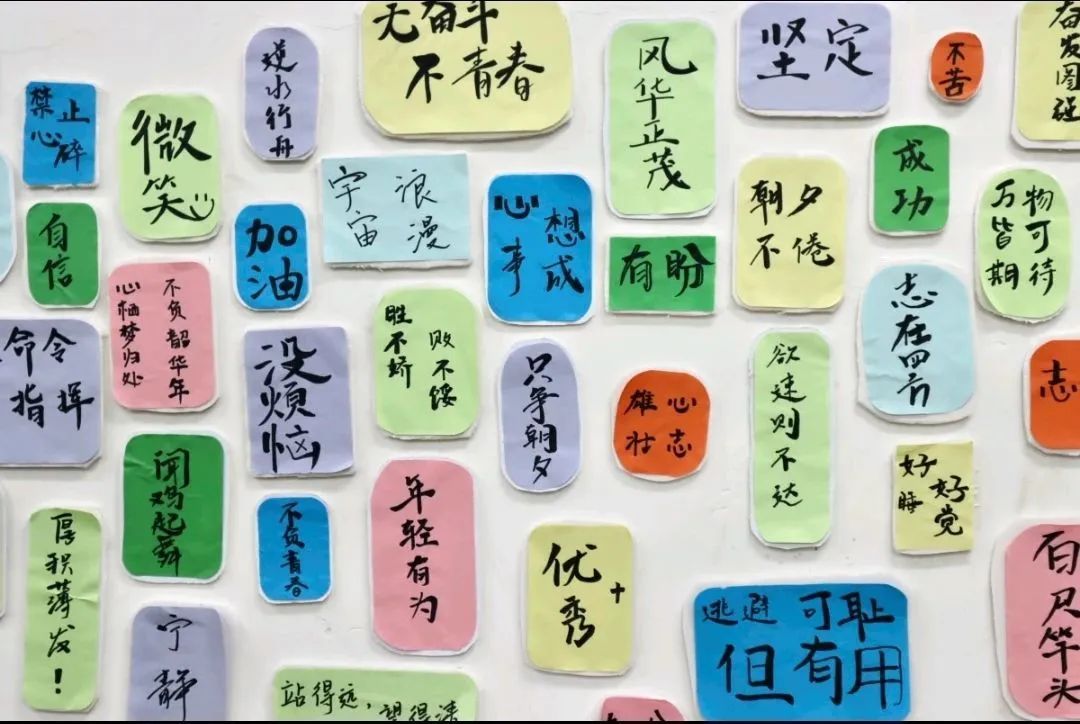 无奋斗
不青春
逆水行舟
风华正茂
坚定
不苦
奋发图强
禁止
心碎
微笑
自信
加油
宇宙
浪漫
心想
事成
有盼
朝夕
不倦
成功
万物
皆可
期待
不负韶华年
心栖梦归处
命令
指挥
没烦恼
胜不骄
败不馁
只争朝夕
雄心
壮志
欲速则不达
志在四方
志
好好
睡觉
闻鸡起舞
不负青春
年轻有为
优秀+
厚积薄发！
宁静
逃避可耻
但有用
百尺竿头
站得远，望得